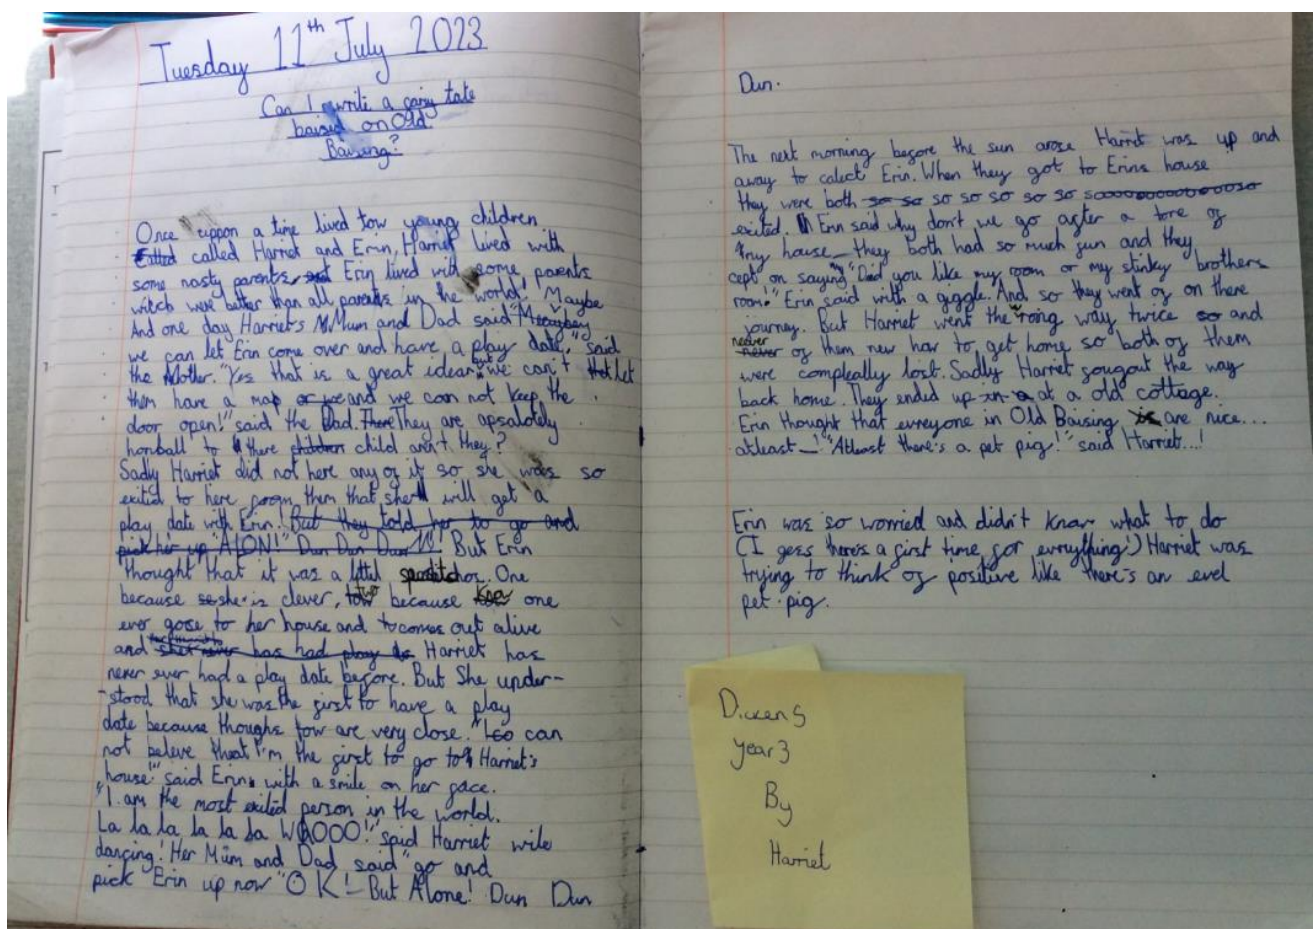 Tuesday 11th July 2023
Can I rewrite a fairy tale
baised on Old
Baising?
Once uppon a time lived tow young children
called Harriet and Erin, Harriet lived with
some nasty parents, Erin lived with some parents
witch were better than all parents in the world!
And one day Harriet's Mum and Dad said "Maybe
we can let Erin come over and have a play date," said
the Mother. "Yes that is a great idear but we can't let
them have a map and we can not keep the
door open!" said the Dad. They are apsalotely
horiball to there child aren't they?
Sadly Harriet did not here any of it so she was so
exitid to here from them that she will get a
play date with Erin. But they told her to go and
pick her up ALON!" Dun Dan Dan But Erin
thought that it was a littel One
because she is clever, two because one
ever gose to her house and comes out alive
and Harriet has
never ever had a play date before. But She under-
-stood that she was the first to have a play
date because thoughs tow are very close. "I can
not beleve that I'm the first to go to Harriet's
house!" said Erin with a smile on her face.
"I am the most exitid person in the world.
La la la la la la WOOOO!" said Harriet wile
dancing! Her Mum and Dad said "go and
pick Erin up now "OK!_ But Alone! Dun Dun
Dun.
The next morning before the sun arose Harriet was up and
away to calect Erin. When they got to Erins house
they were both so so so so so so
exited. Erin said why don't we go after a tore of
my house_ they both had so much fun and they
cept on saying "Did you like my room or my stinky brothers
room!" Erin said with a giggle. And so they went of on there
journey. But Harriet went the wroing way twice and
neaver of them new how to get home so both of them
were compleatly lost. Sadly Harriet fougout the way
back home. They ended up at a old cottage.
Erin thought that evreyone in Old Baising are nice...
atleast_! "Atleast there's a pet pig!" said Harriet...!
Erin was so worried and didn't know what to do
(I gess there's a first time for evrything!) Harriet was
trying to think of positive like there's an evel
pet pig.
Dickens
Year 3
By
Harriet